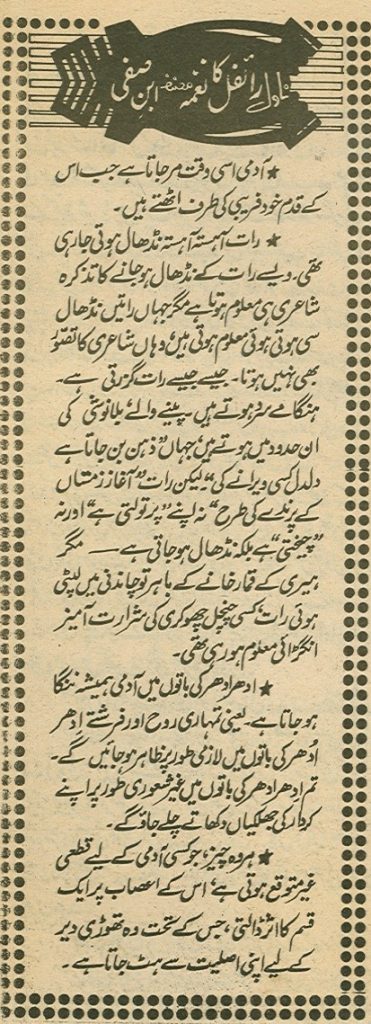 ناول رائفل کا نغمہ مصنف ابن صفی
★ آدمی اسی وقت مر جاتا ہے جب اس
کے قدم خود فریبی کی طرف اٹھتے ہیں۔
★ رات آہستہ آہستہ نڈھال ہوتی جا رہی
تھی۔ ویسے رات کے نڈھال ہو جانے کا تذکرہ
شاعری ہی معلوم ہوتا ہے مگر جہاں راتیں نڈھال
سی ہوتی ہوئی معلوم ہوتی ہیں، وہاں شاعری کا تصوّر
بھی نہیں ہوتا۔ جیسے جیسے رات گزرتی ہے۔
ہنگامے سرد ہوتے ہیں۔ پینے والے، بلانوشی کی
ان حدود میں ہوتے ہیں، جہاں "ذہن بن جاتا ہے
دلدل کسی ویرانے کی" لیکن رات "آغازِ زمستاں
کے پرندے کی طرح" نہ اپنے "پر تولتی ہے" اور نہ
"چیختی" ہے بلکہ نڈھال ہو جاتی ہے — مگر
ہیری کے قمار خانے کے باہر تو چاندنی میں لپٹی
ہوئی رات، کسی چنچل چھوکری کی شرارت آمیز
انگڑائی معلوم ہو رہی تھی۔
★ ادھر ادھر کی باتوں میں آدمی ہمیشہ ننگا
ہو جاتا ہے۔ یعنی تمہاری روح اور فرشتے اِدھر
اُدھر کی باتوں میں لازمی طور پر ظاہر ہو جائیں گے۔
تم ادھر ادھر کی باتوں میں غیر شعوری طور پر اپنے
کردار کی جھلکیاں دکھاتے چلے جاؤ گے۔
★ ہر وہ چیز، جو کسی آدمی کے لیے قطعی
غیر متوقع ہوتی ہے، اس کے اعصاب پر ایک
قسم کا اثر ڈالتی، جس کے تحت وہ تھوڑی دیر
کے لیے اپنی اصلیت سے ہٹ جاتا ہے۔